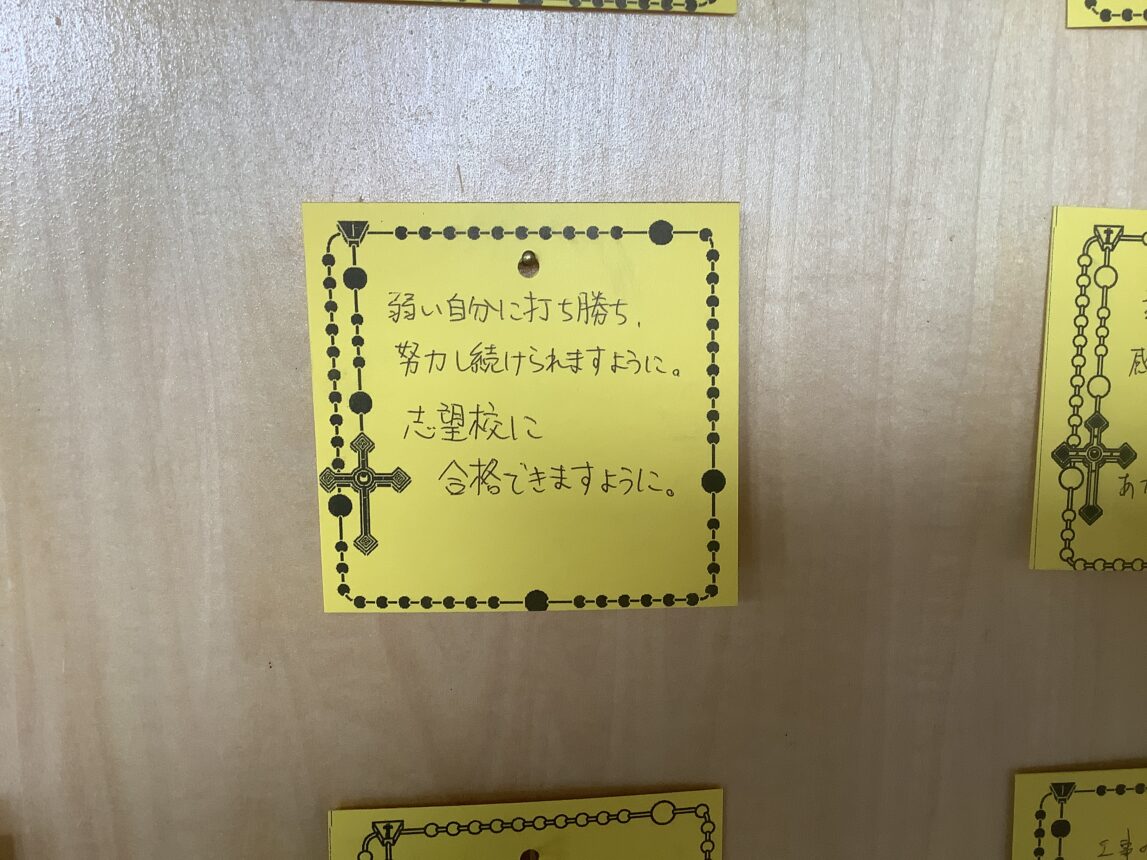 弱い自分に打ち勝ち、
努力し続けられますように。
志望校に
合格できますように。
感
あ
工事